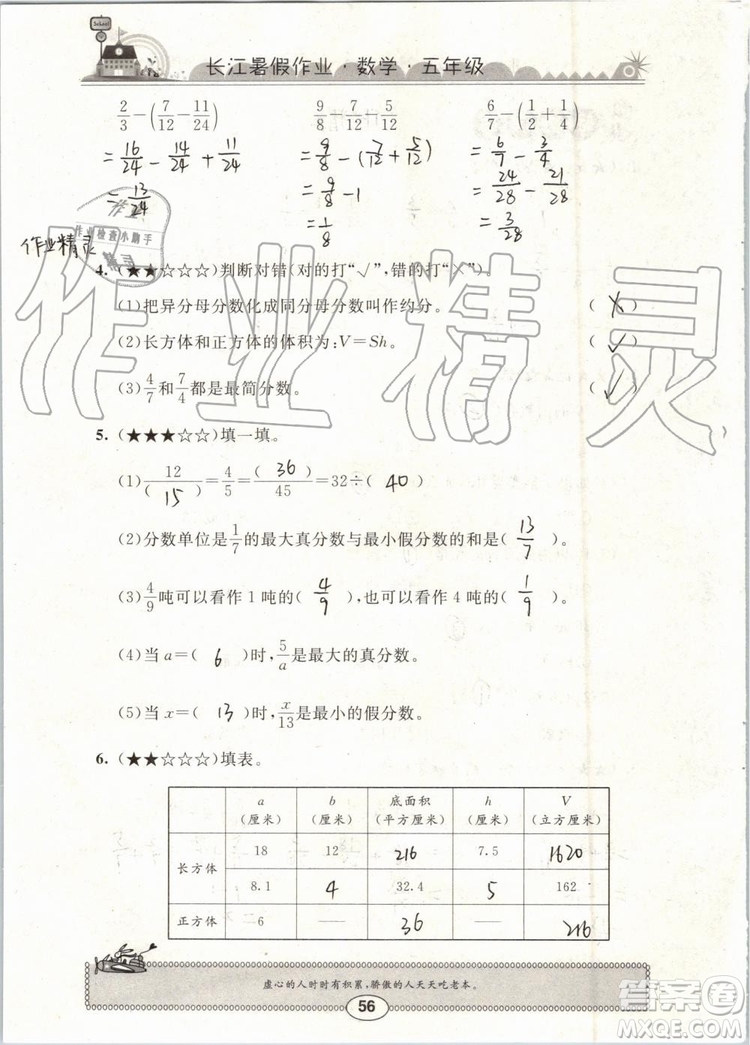 School
长江暑假作业·数学·五年级
2/3-(7/12-11/24) 9/8-7/12-5/12 6/7-(1/2+1/4)
=16/24-14/24+11/24 =9/8-(7/12+5/12) =6/7-3/4
=13/24 =9/8-1 =24/28-21/28
=1/8 =3/28
作业
作业检查小助手
精灵
作业精灵
4.(★★☆☆☆)判断对错(对的打“√”,错的打“×”)
(1)把异分母分数化成同分母分数叫作约分。 (×)
(2)长方体和正方体的体积为:V=Sh。 (√)
(3)4/7和7/4都是最简分数。 (√)
作业精灵
5.(★★★☆☆)填一填。
(1)12/(15)=4/5=(36)/45=32÷(40)
(2)分数单位是1/7的最大真分数与最小假分数的和是(13/7)。
(3)4/9吨可以看作1吨的(4/9),也可以看作4吨的(1/9)。
(4)当a=(6)时,5/a是最大的真分数。
(5)当x=(13)时,x/13是最小的假分数。
6.(★★☆☆☆)填表。
a(厘米) b(厘米) 底面积(平方厘米) h(厘米) V(立方厘米)
长方体 18 12 216 7.5 1620
8.1 4 32.4 5 162
正方体 6 — 36 — 216
虚心的人时时有积累,骄傲的人天天吃老本。
56
答案圈
MXQE.COM